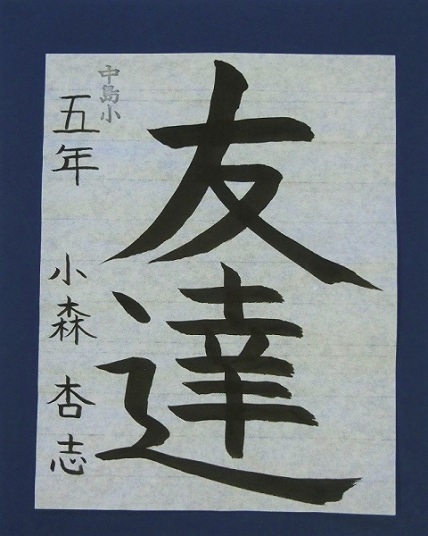 友達
中島小
五年 小森 杏志